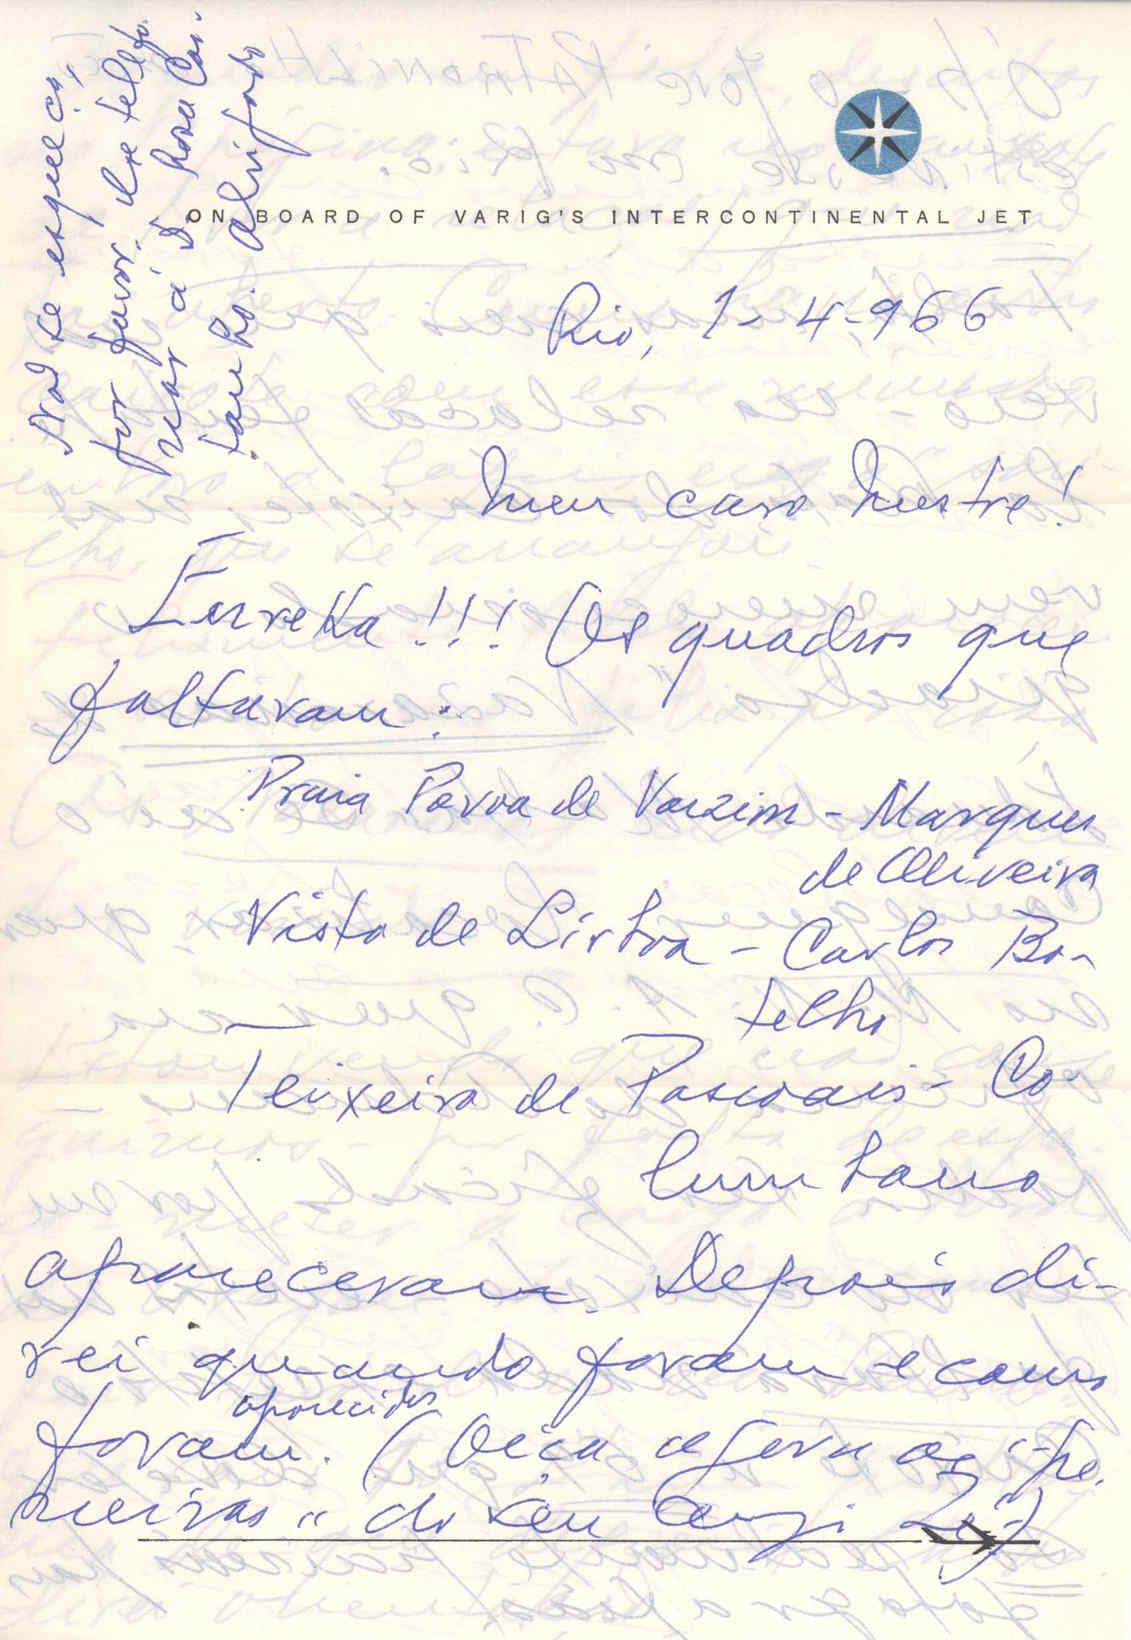 Não se esqueça,
por favor, de telefo-
nar à D. Rosa Cas-
tanho. Obrigado
ON BOARD OF VARIG'S INTERCONTINENTAL JET
Rio, 1-4-966
Meu caro Mestre!
Eureka!!! Os quadros que
faltavam:
Praia Povoa de Varzim - Marques
de Oliveira
Vista de Lisboa - Carlos Bo-
telho
Teixeira de Pascoais - Co-
lumbano
apareceram. Depois di-
rei quando foram e como
aparecidos
foram. (Oiça agora as "pe-
neiras" do seu